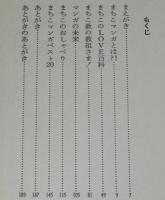 もくじ
まえがき 7
まちこマンガとは?! 9
まちこのLOVE百科 49
まちこ教の教祖さま! 81
マンガの未来 105
まちこのおしゃべり 115
まちこマンガベスト20 145
あとがき 187
あとがきのあとがき 189